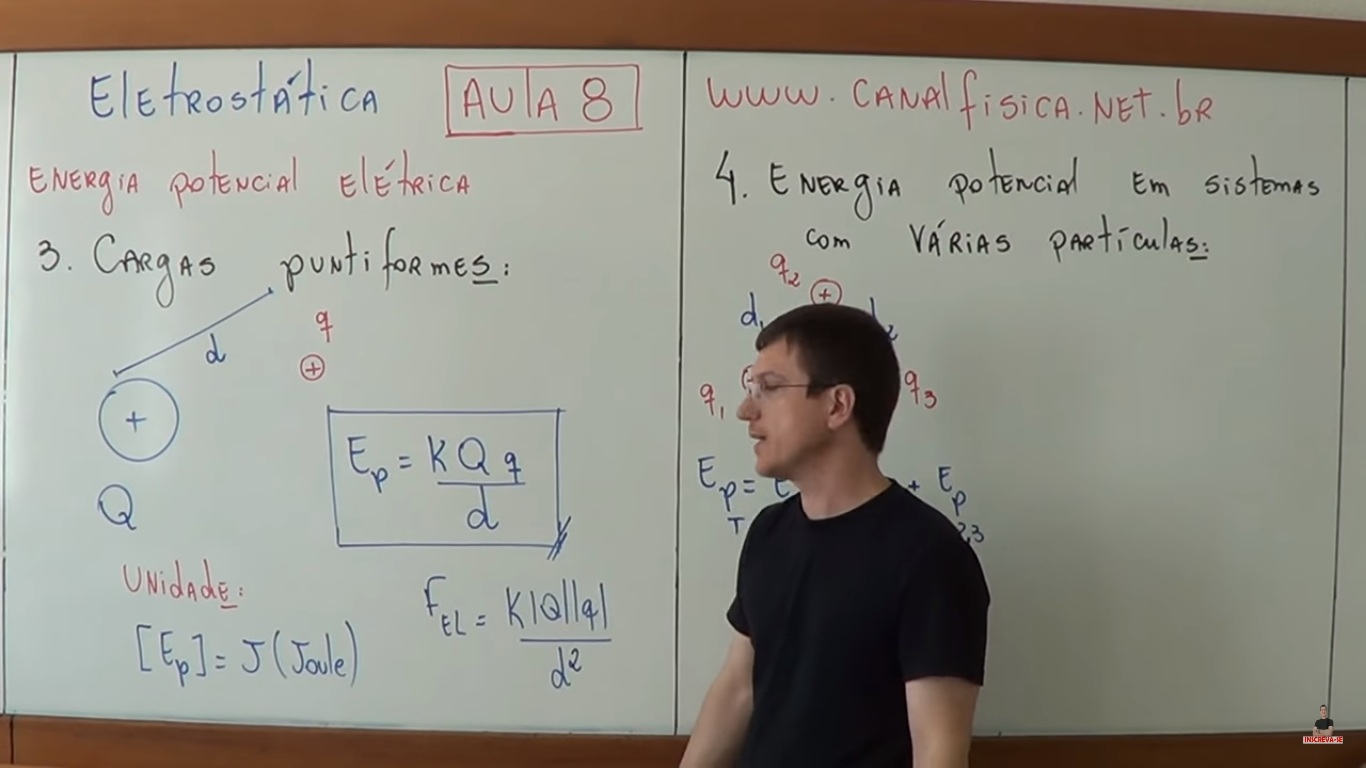 Eletrostática
AULA 8
Energia potencial elétrica
3. Cargas puntiformes:
d
q
+
+
Q
Ep = KQq/d
Unidade:
[Ep] = J (Joule)
FEL = K|Q||q|/d²
www.canalfisica.net.br
4. Energia potencial em sistemas
com várias partículas:
q2
+
d1
q1
q3
Ep = E + Ep
T 2,3
INSCREVA-SE